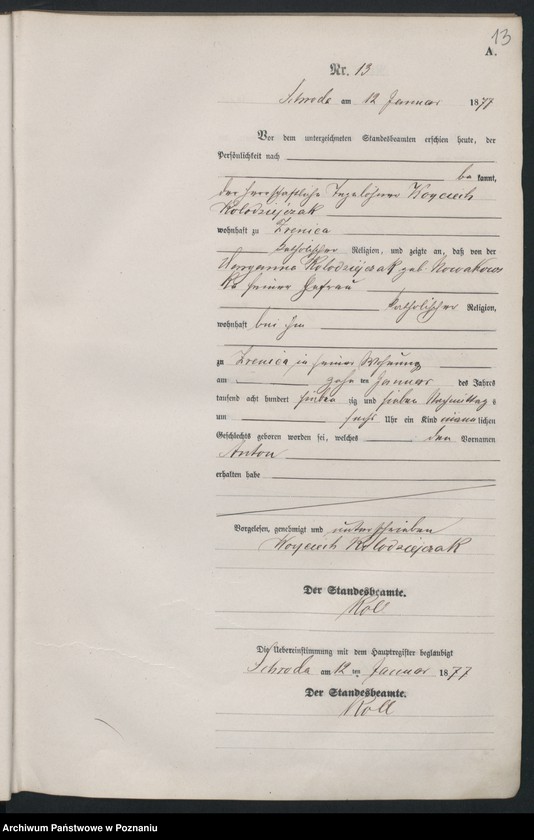 13
A.
Nr. 13
Schroda am 12 Januar 1877
Vor dem unterzeichneten Standesbeamten erschien heute, der
Persönlichkeit nach
bekannt,
der herrschaftliche Tagelöhner Woyciech
Kolodziejczak
wohnhaft zu Zrenica
katholischer Religion, und zeigte an, daß von der
Maryanna Kolodziejczak geb. Nowakows
ka seiner Ehefrau
katholischer Religion,
wohnhaft bei ihm
zu Zrenica in seiner Wohnung
am zehn ten Januar des Jahres
tausend acht hundert sieben zig und sieben Nachmittags
um sechs Uhr ein Kind männlichen
Geschlechts geboren worden sei, welches den Vornamen
Anton
erhalten habe
Vorgelesen, genehmigt und unterschrieben
Woyciech Kolodziejczak
Der Standesbeamte.
Roll
Die Uebereinstimmung mit dem Hauptregister beglaubigt
Schroda am 12 ten Januar 1877
Der Standesbeamte.
Roll
Archiwum Państwowe w Poznaniu